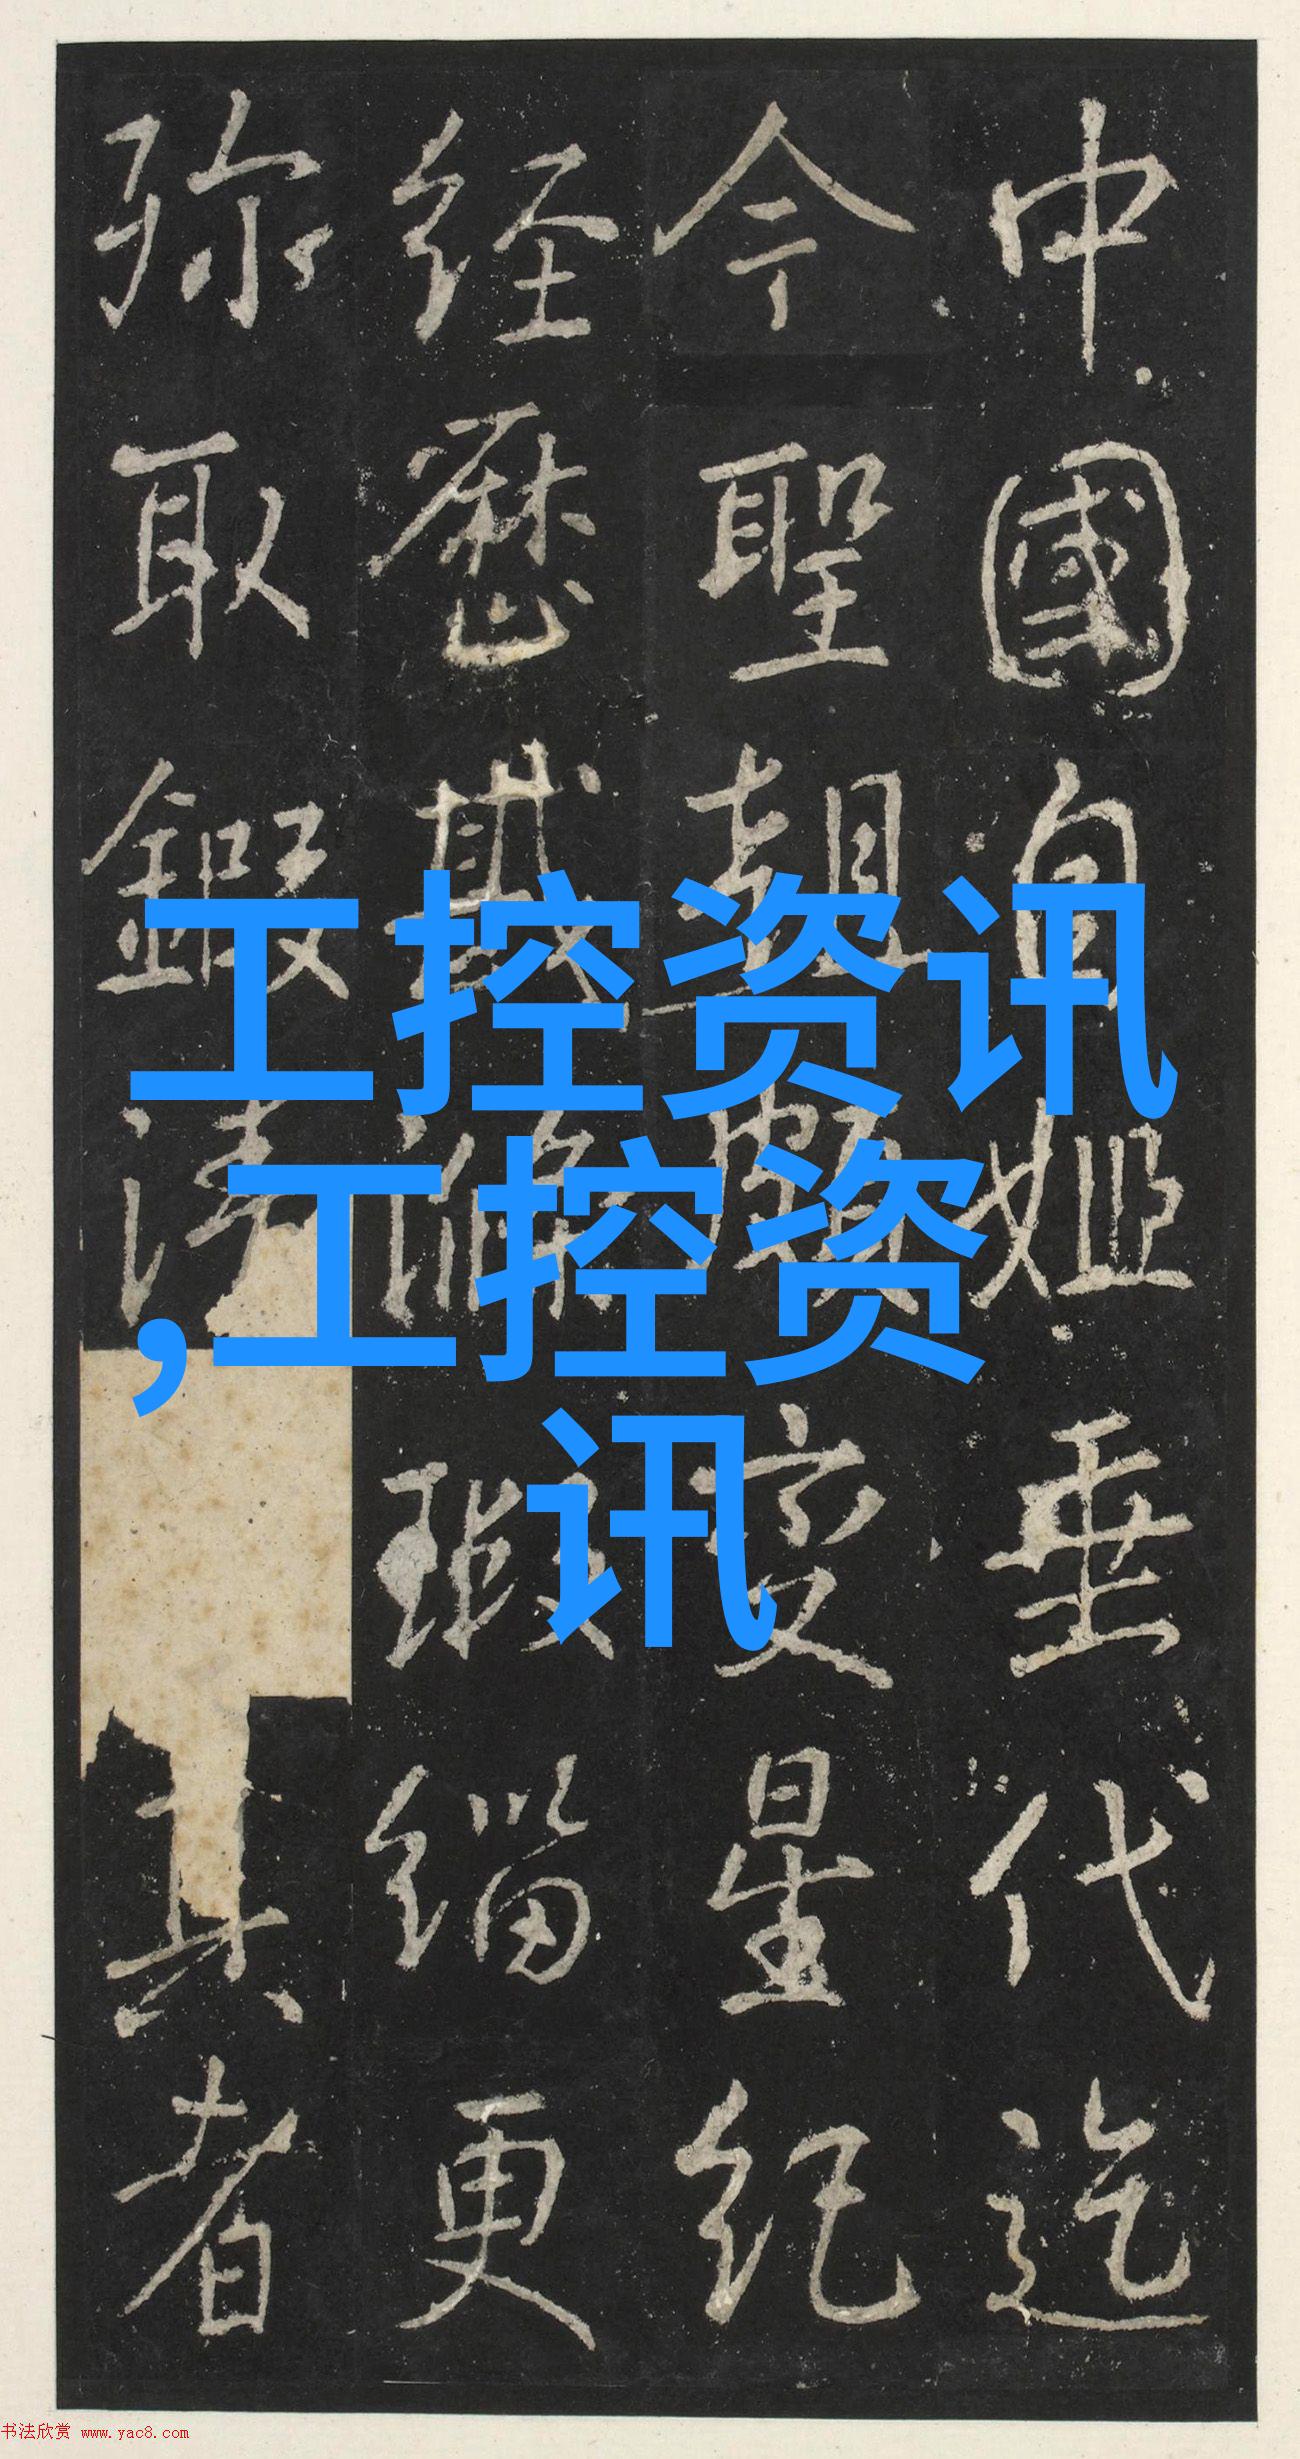 中國自姬垂代迄
今聖變星紀
经歷瑕緇更
弥取鍛清者
工控资讯
,工控资
讯
书法欣赏 www.yac8.com